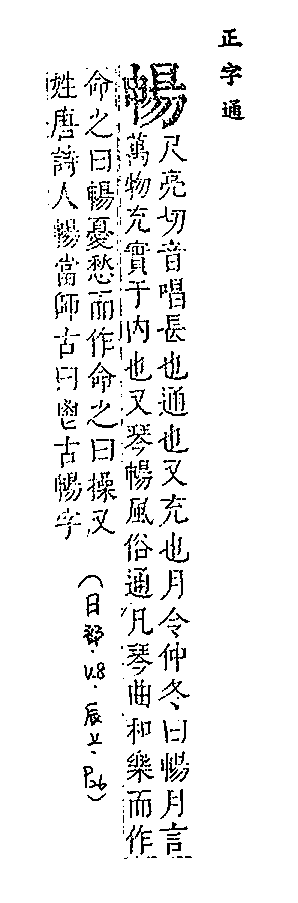 正字通
暢
尺亮切音唱長也通也又充也月令仲冬曰暢月言
萬物充實于內也又琴暢風俗通凡琴曲和樂而作
命之曰暢憂愁而作命之曰操又
姓唐詩人暢當師古曰鬯古暢字
(日部.V.8.辰上.P26)